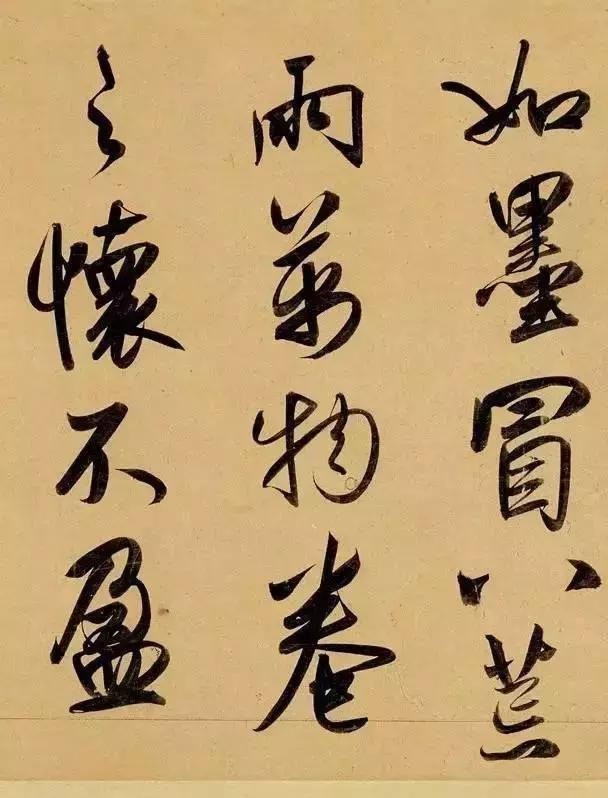 如墨冒八荒
雨萬物卷
之懷不盈